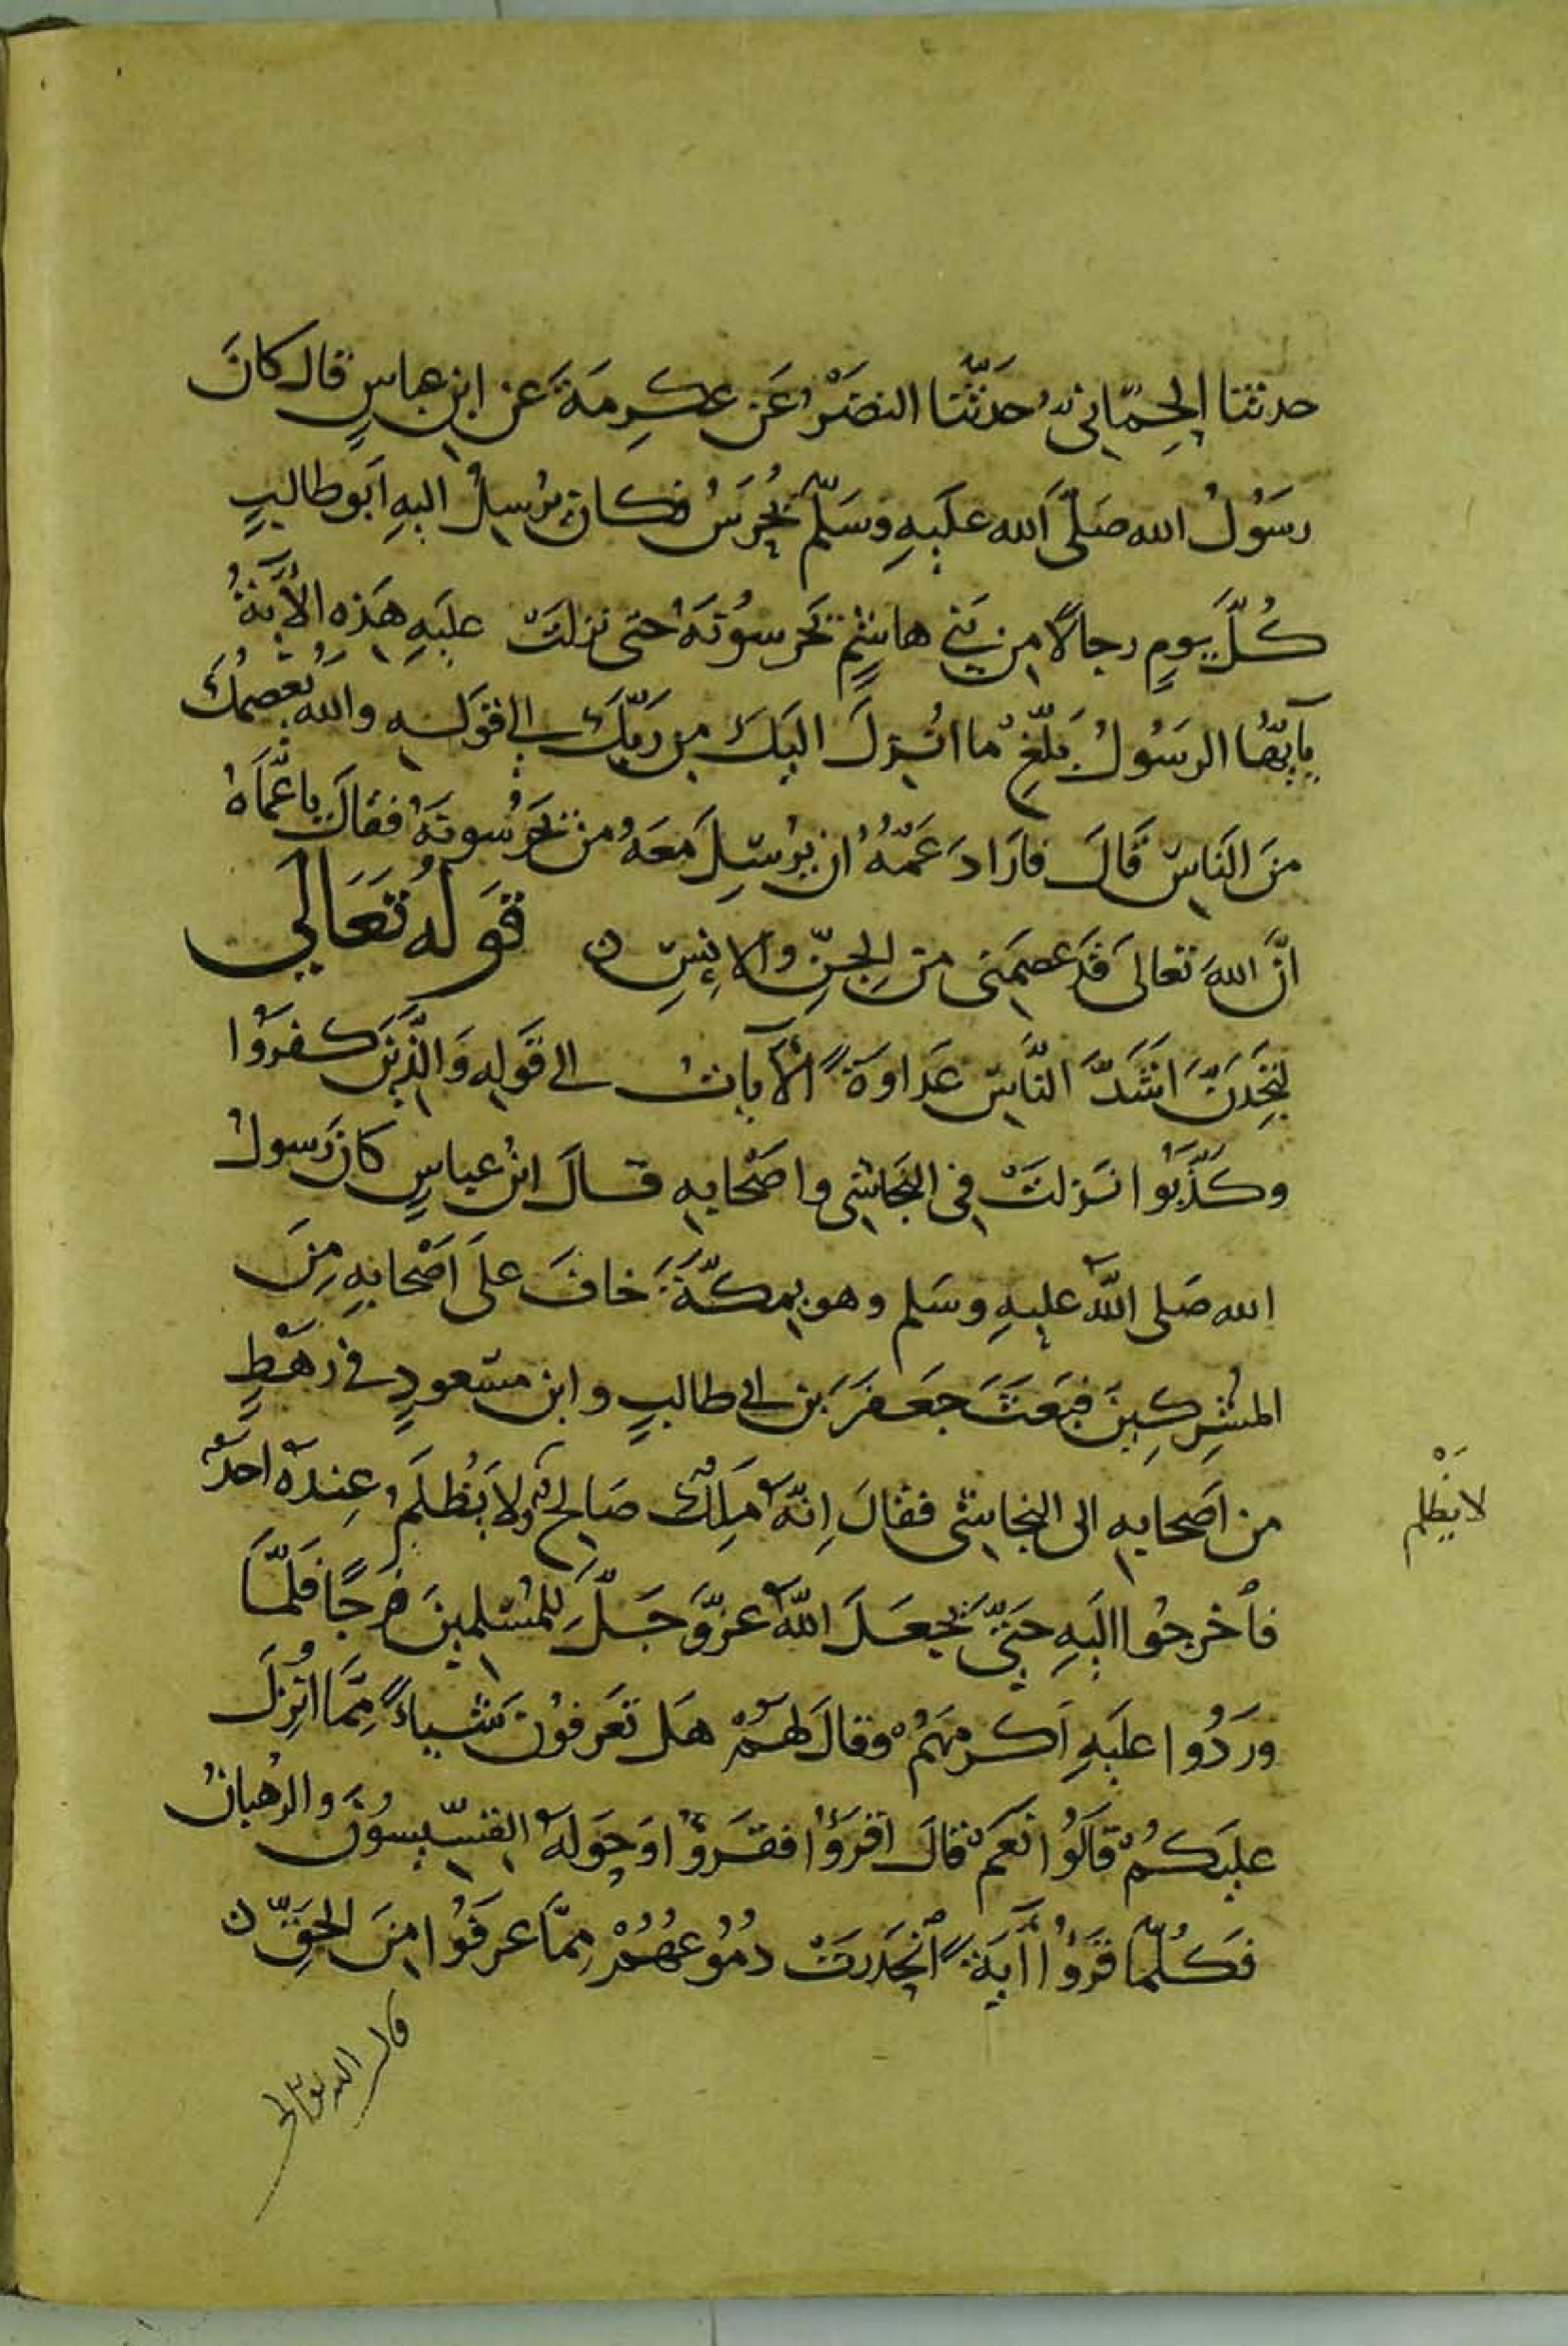 حدثنا الحِمّاني حَدّثَنا النضَرْ عَن عِكرِمَة عَن ابنِ عباسٍ قال كانَ
رسَوُلُ الله صَلّى الله علَيهِ وَسَلّم يُحْرَسُ فكان يُرسِلُ اليهِ اَبو طالبٍ
كُلَّ يومٍ رجالًا مِن بَنِي هاشِمٍ يَحرسوُنَهُ حتى نزلَتْ علَيهِ هَذِه الآيةُ
يآيهّا الرسَوُلُ بَلّغِ ما انُزِلَ اليَكَ مِن رَبّكَ الى قَولِهِ والله يَعصِمُكَ
منَ النَاسِ قَالَ فارَادَ عَمّهُ ان يُرْسِلَ مَعَهُ من يَحْرُسُونَهُ فقالَ يا عَمّاهُ
انَّ اللهَ تعالى قَدْ عصَمَنى مِنَ الجِنِّ والانِسِ ن قَولُه تَعَالَى
لتَجِدَنّ اَشَدَّ النّاسِ عَدَاوَةً الآيات الى قَولِهِ وَالّذِينَ كَفرَوُا
وكَذّبَوُا نَزلَتْ فِى النجَاشِى واصَحابهِ قالَ ابنُ عباسٍ كانَ رَسولُ
الله صَلى اللهُ عليهِ وسَلم وهو بمِكّةَ خافَ علَى اَصْحابهِ مِنَ
المشُرِكِينَ فبَعَثَ جَعفرَ بن ابى طالبٍ وابن مسَعودٍ في رَهْطٍ
من اصَحابهِ الى النجاشى فقالَ اِنّهُ مَلِكٌ صَالِحٌ ولا يَظُلَمُ عِندَهُ احدٌ
لا يَظْلِم
فأخرجُوا اليَهِ حَتّى يَجعَلَ اللهُ عزّوَجَلّ للمُسْلمينَ فرَجًا فلَمّا
ورَدُوا علَيهِ اَكرمَهُمْ وقالَ لهُمْ هَل تعَرفوُنَ شَياءً مِمّا اُنْزِلَ
علَيكُمْ قالَوُا نَعَمْ قالَ اقرَؤُا فقَرَؤُا وَحَولَهُ القسّيسوُنَ والرُهبانُ
فكُلّما قَرَؤُا آيَةً انْحَدَرَتْ دُمُوعهُمُ مِمّا عرَفَوُا مِنَ الحَقِّ ن